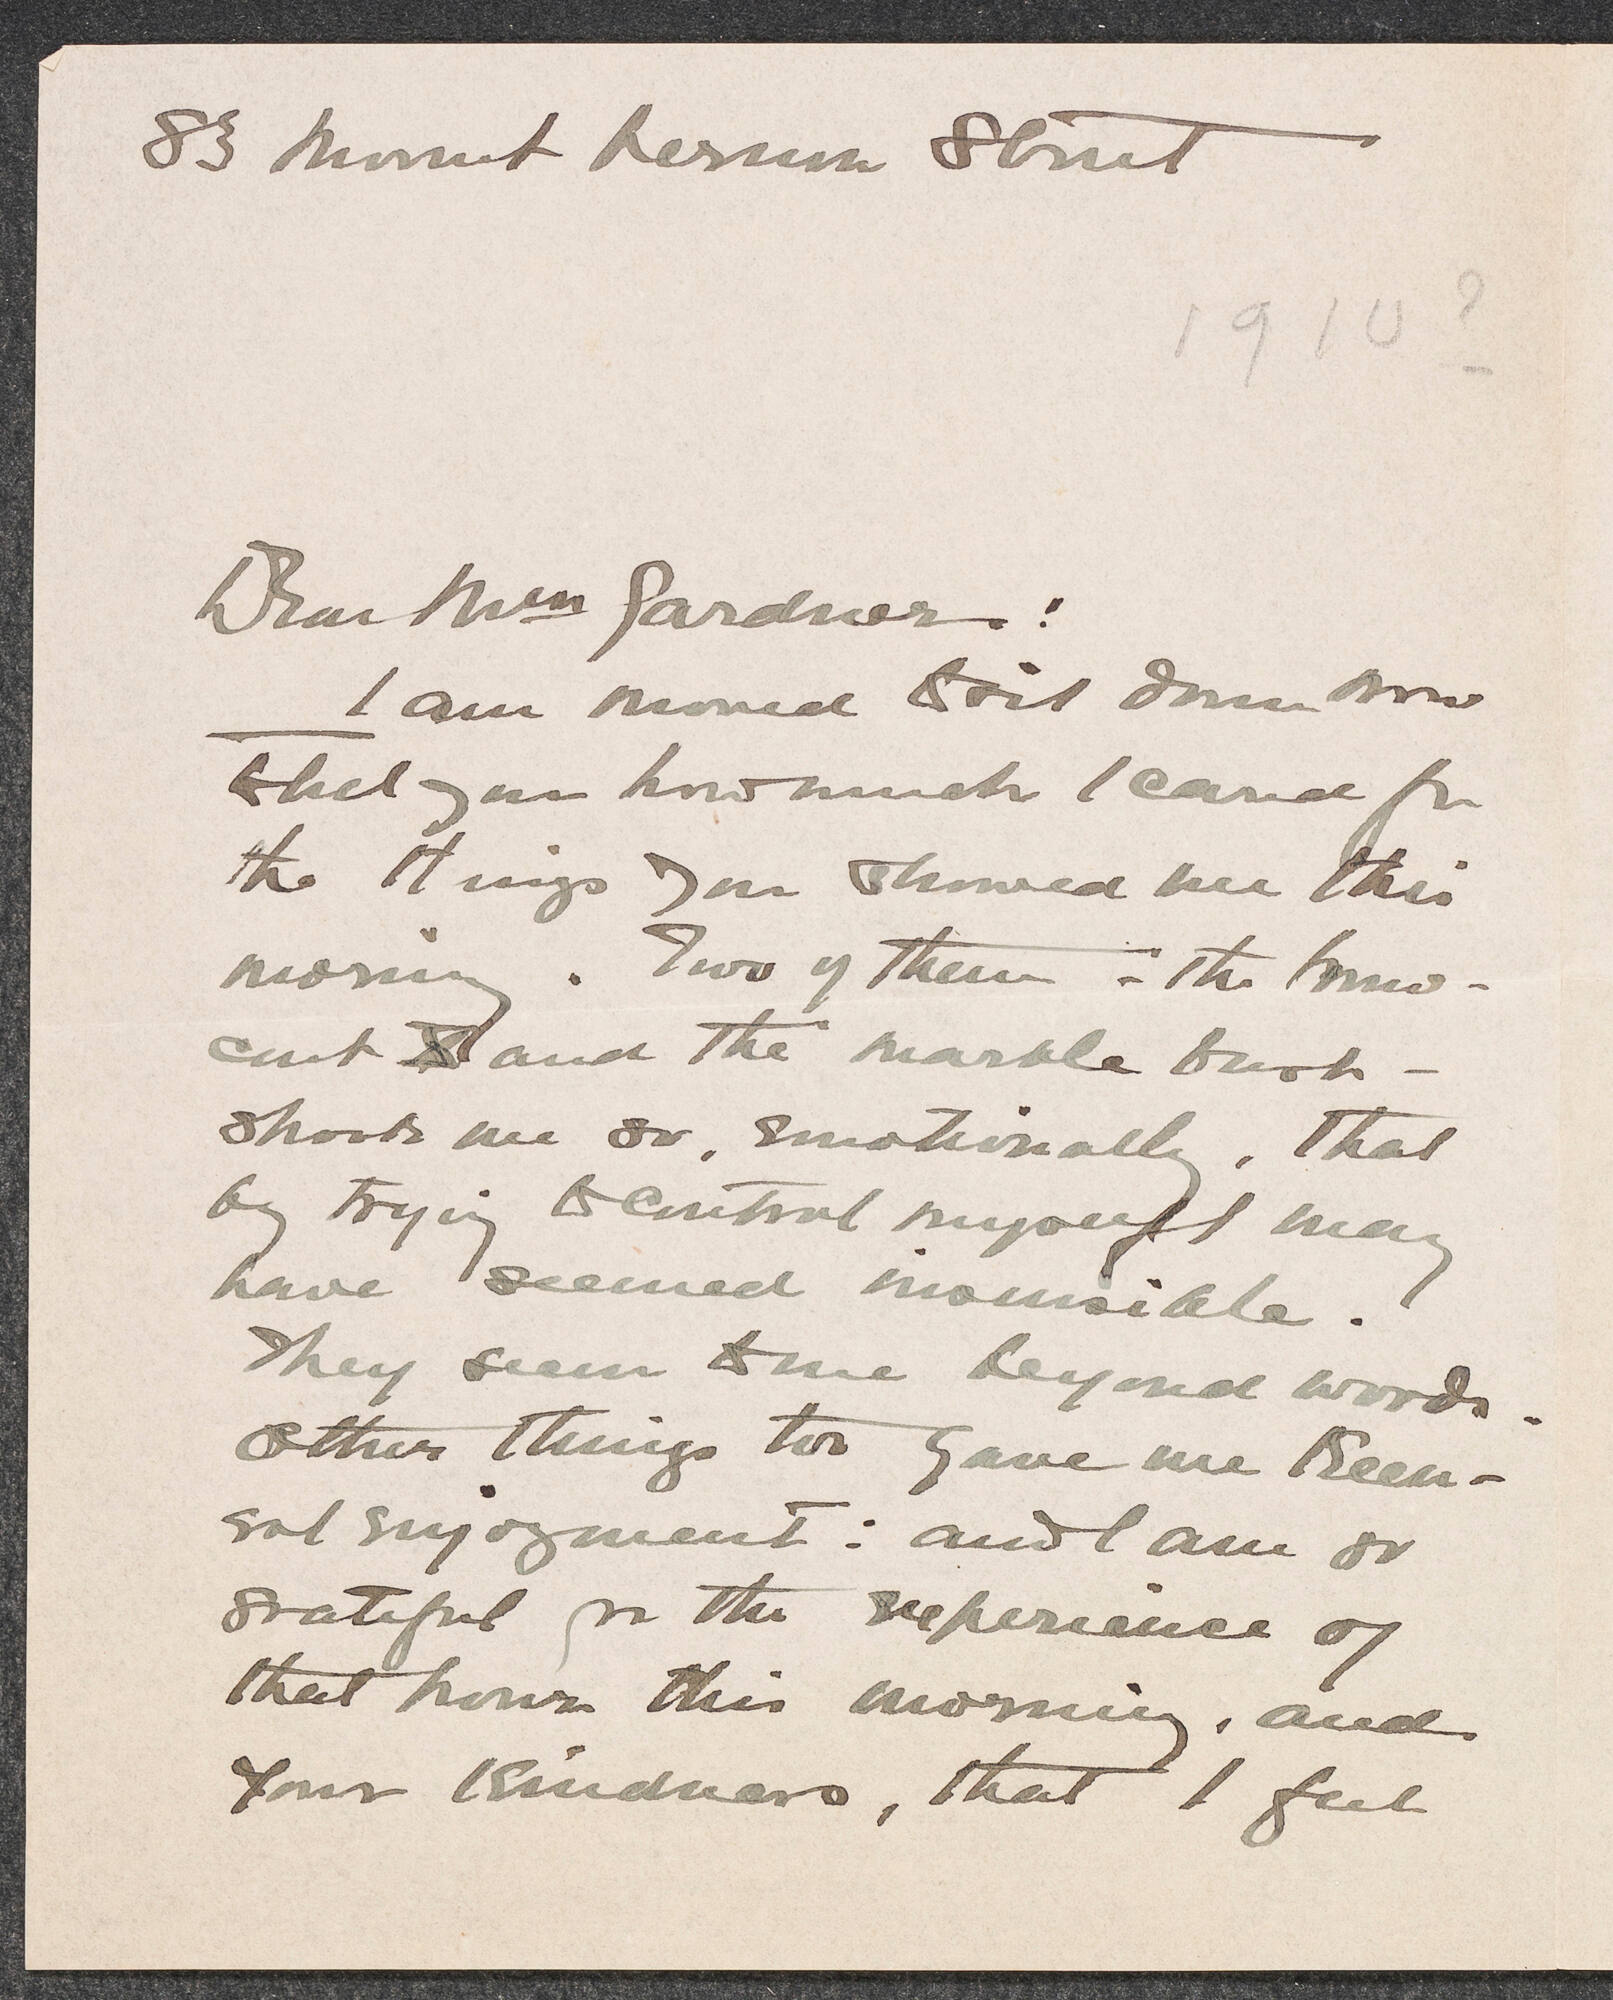 83 Mount Vernon Street
1910?
Dear Mrs Gardner:
I am moved to sit down now
to tel you how much I cared for
the things you showed me this
morning. Two of them - the
and the marble bust -
shook me so, emotionally, that
by trying to control myself I may
have seemed insensible.
They seem to me beyond words.
Other things too gave me keen-
est enjoyment: and I am so
grateful for the experience of
that hour this morning, and
your kindness, that I feel